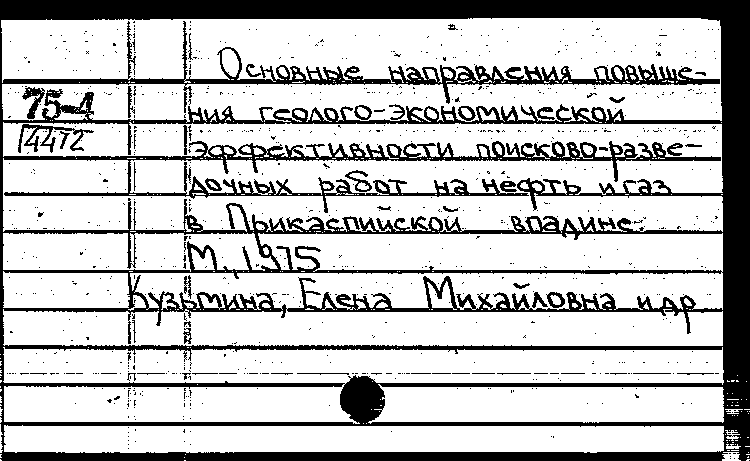 Основные направления повыше-
75-4
ния геолого-экономической
14472
эффективности поисково-разве-
дочных работ на нефть и газ
в Прикаспийской впадине.
М., 1975
Кузьмина, Елена Михайловна и др